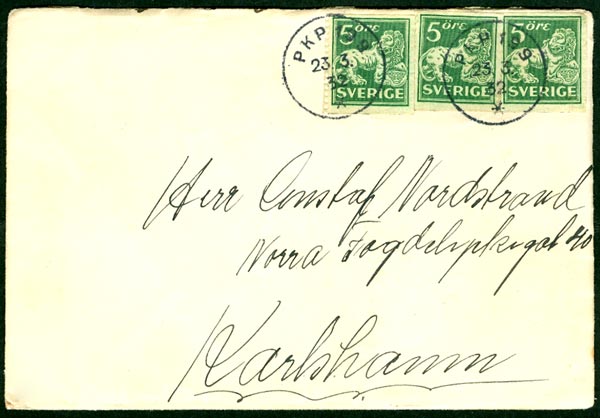 5 ÖRE 5 ÖRE 5 ÖRE
SVERIGE SVERIGE SVERIGE
PKP 199
23.3.
32
*
PKP 199
23.3.
32
*
Herr Nordstrand
Norra 40
Karlshamn